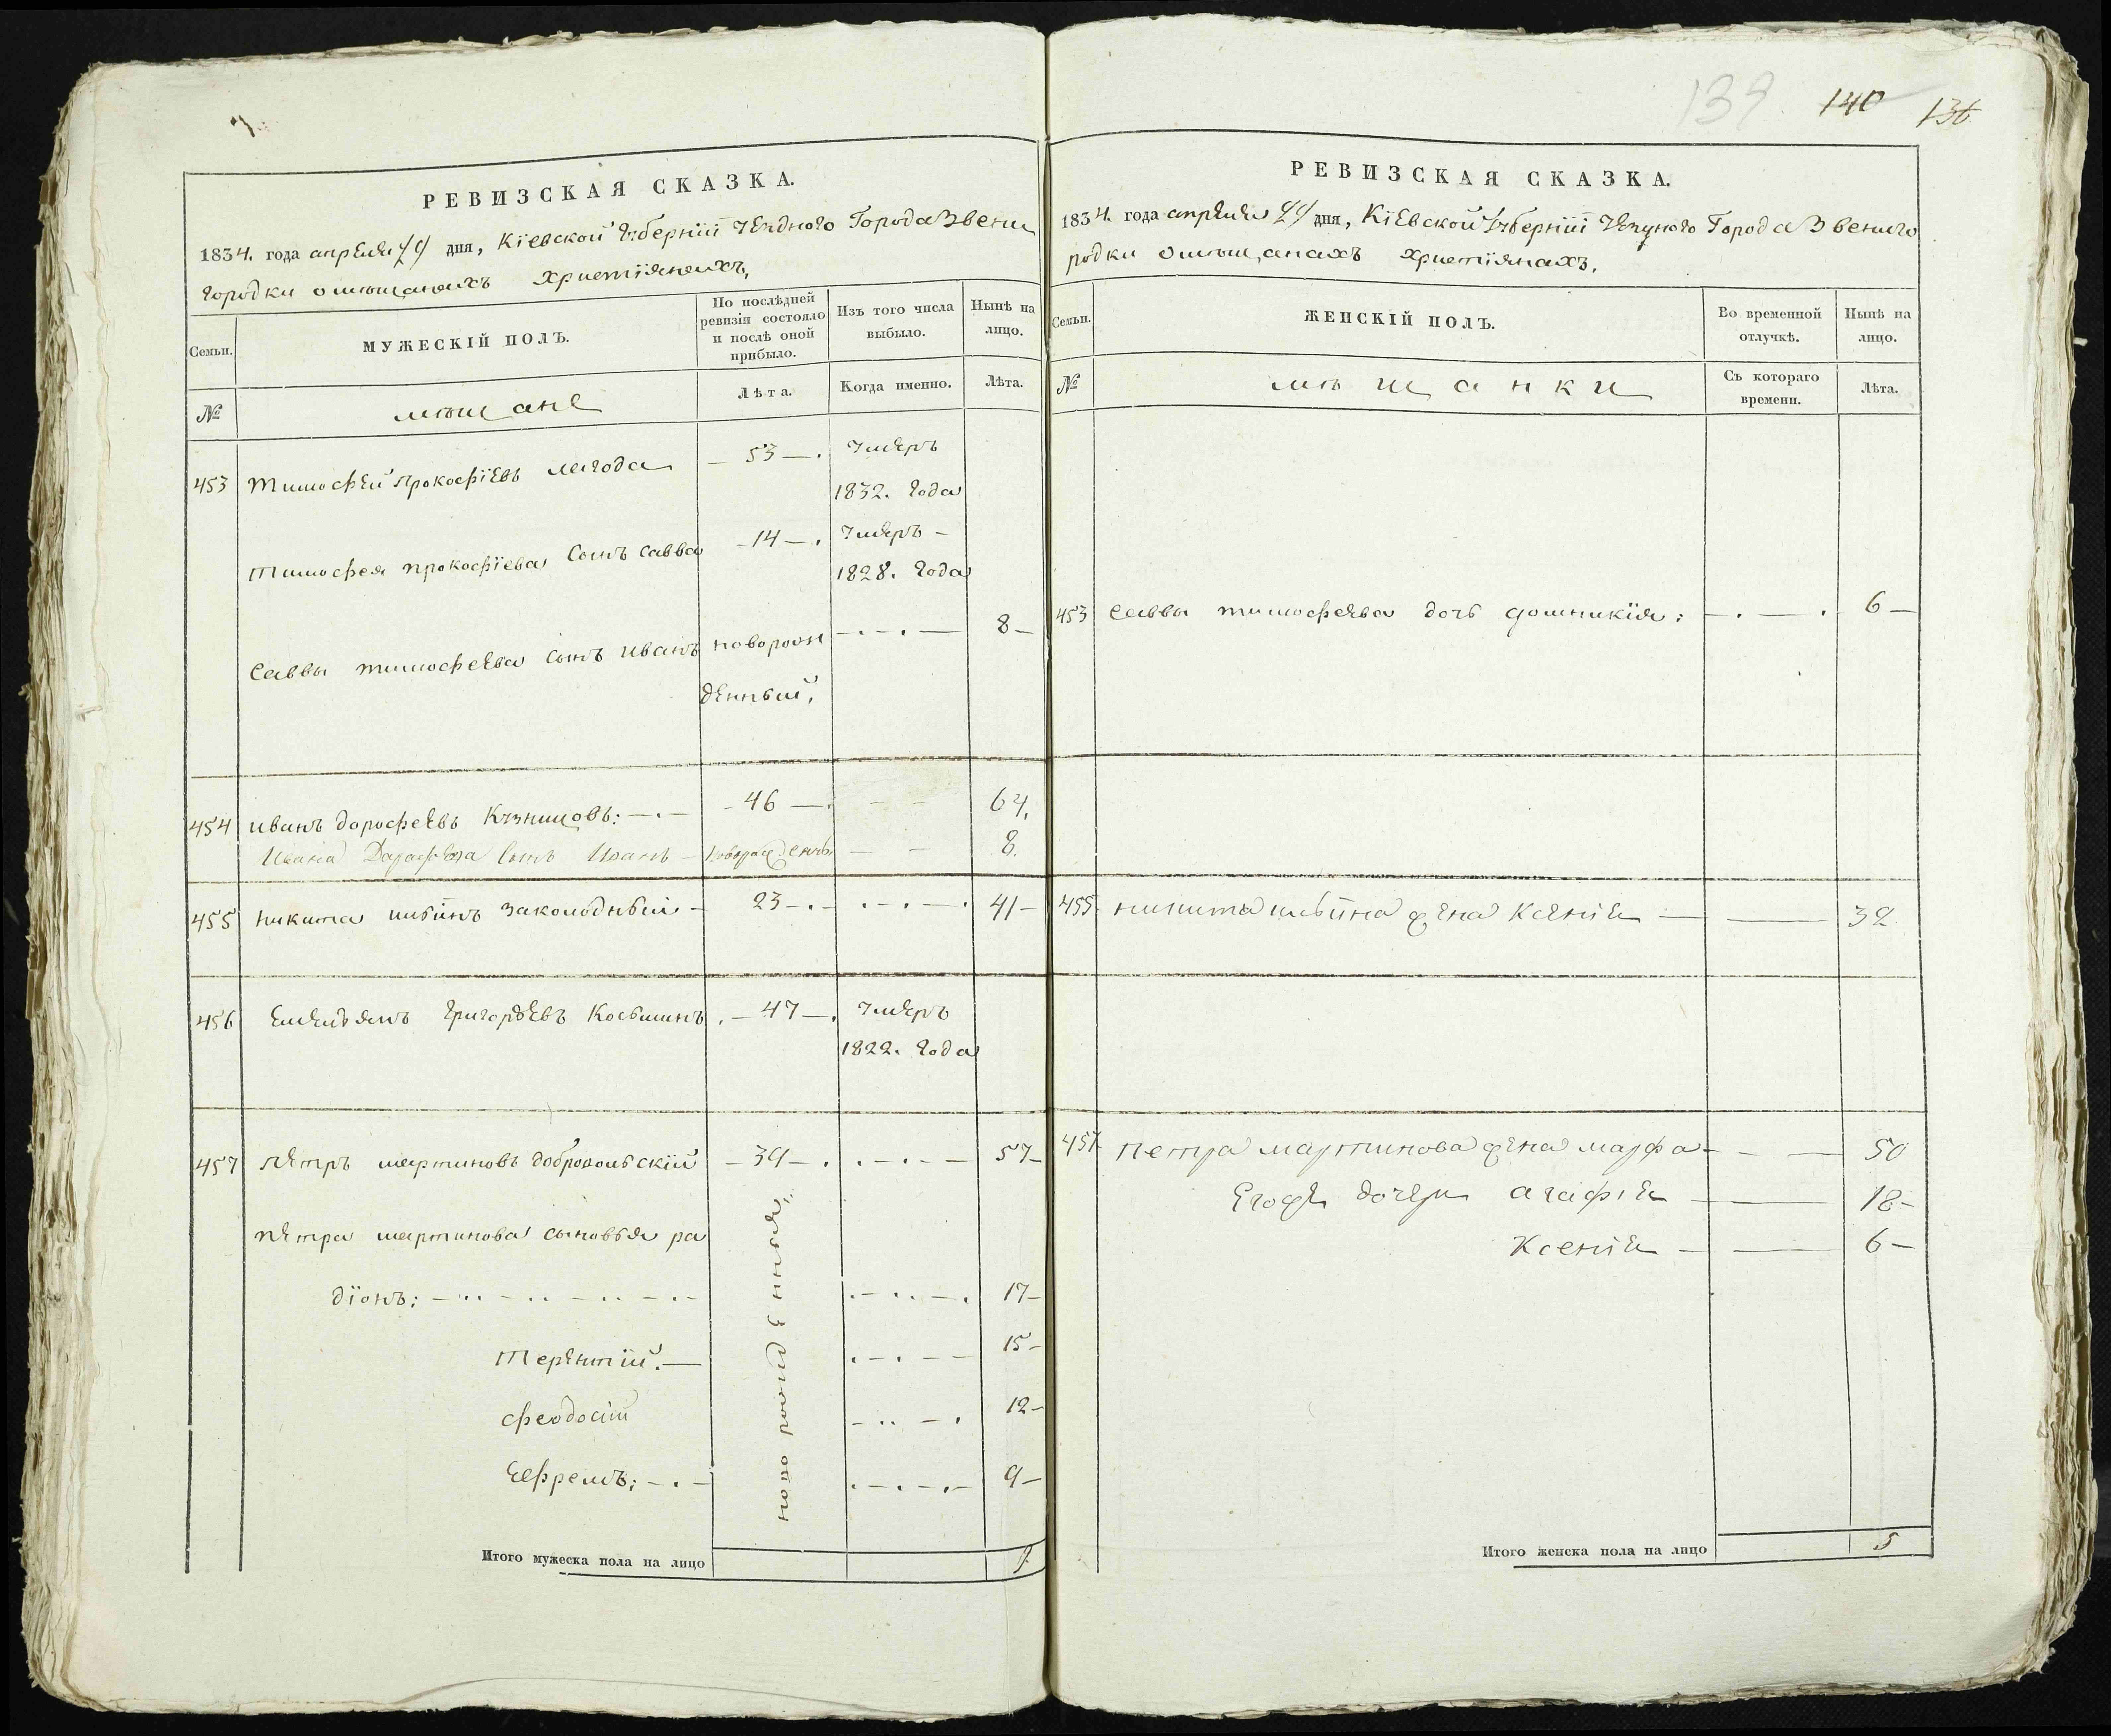 139 140 136
РЕВИЗСКАЯ СКАЗКА.
1834. года апреля дня, Кіевской Губерніи Уездного Города Звени
городки о мѣщанахъ христіянахъ,
Семьи.
МУЖЕСКІЙ ПОЛЪ.
По послѣдней ревизіи состояло и послѣ оной прибыло.
Изъ того числа выбыло.
Нынѣ на лицо.
№
мѣщане
Лѣта.
Когда именно.
Лѣта.
453 Тимофей Прокофіевъ Лагода — 53 —. Умеръ
1832. года
Тимофея Прокофіева Сынъ Савва — 14 —. Умеръ —
1828. года
Саввы Тимофеева Сынъ Иванъ новорож 8 —
денный,
454 Иванъ Дорофеевъ Кузницовъ: — 46 —. 64,
Ивана Дарафева Сынъ Иванъ — 8.
455 Никита Ильинъ Заколодный — 23 — 41 —
456 Емельянъ Григорьевъ Косьминъ — 47 —. Умеръ
1822. года
457 Петръ Мартиновъ Добровольскій — 39 —. 57 —
Петра Мартинова сыновья Ра
діонъ: 17 —
Терентій. — 15 —
Феодосій 12 —
Ефремъ; — 9 —
ново рожденныя,
Итого мужеска пола на лицо 9.
РЕВИЗСКАЯ СКАЗКА.
1834. года апреля дня, Кіевской Губерніи Уезднаго Города Звениго
родки о мѣщанахъ христіянахъ,
Семьи.
ЖЕНСКІЙ ПОЛЪ.
Во временной отлучкѣ.
Нынѣ на лицо.
№
мѣщанки
Съ котораго времени.
Лѣта.
453 Саввы Тимофеева дочь Домникія: 6 —
455 Никита Ильина жена Ксенія — 32
457 Петра Мартинова жена Марфа — 50
Егоже дочери Агафія — 18 —
Ксенія — 6 —
Итого женска пола на лицо 5